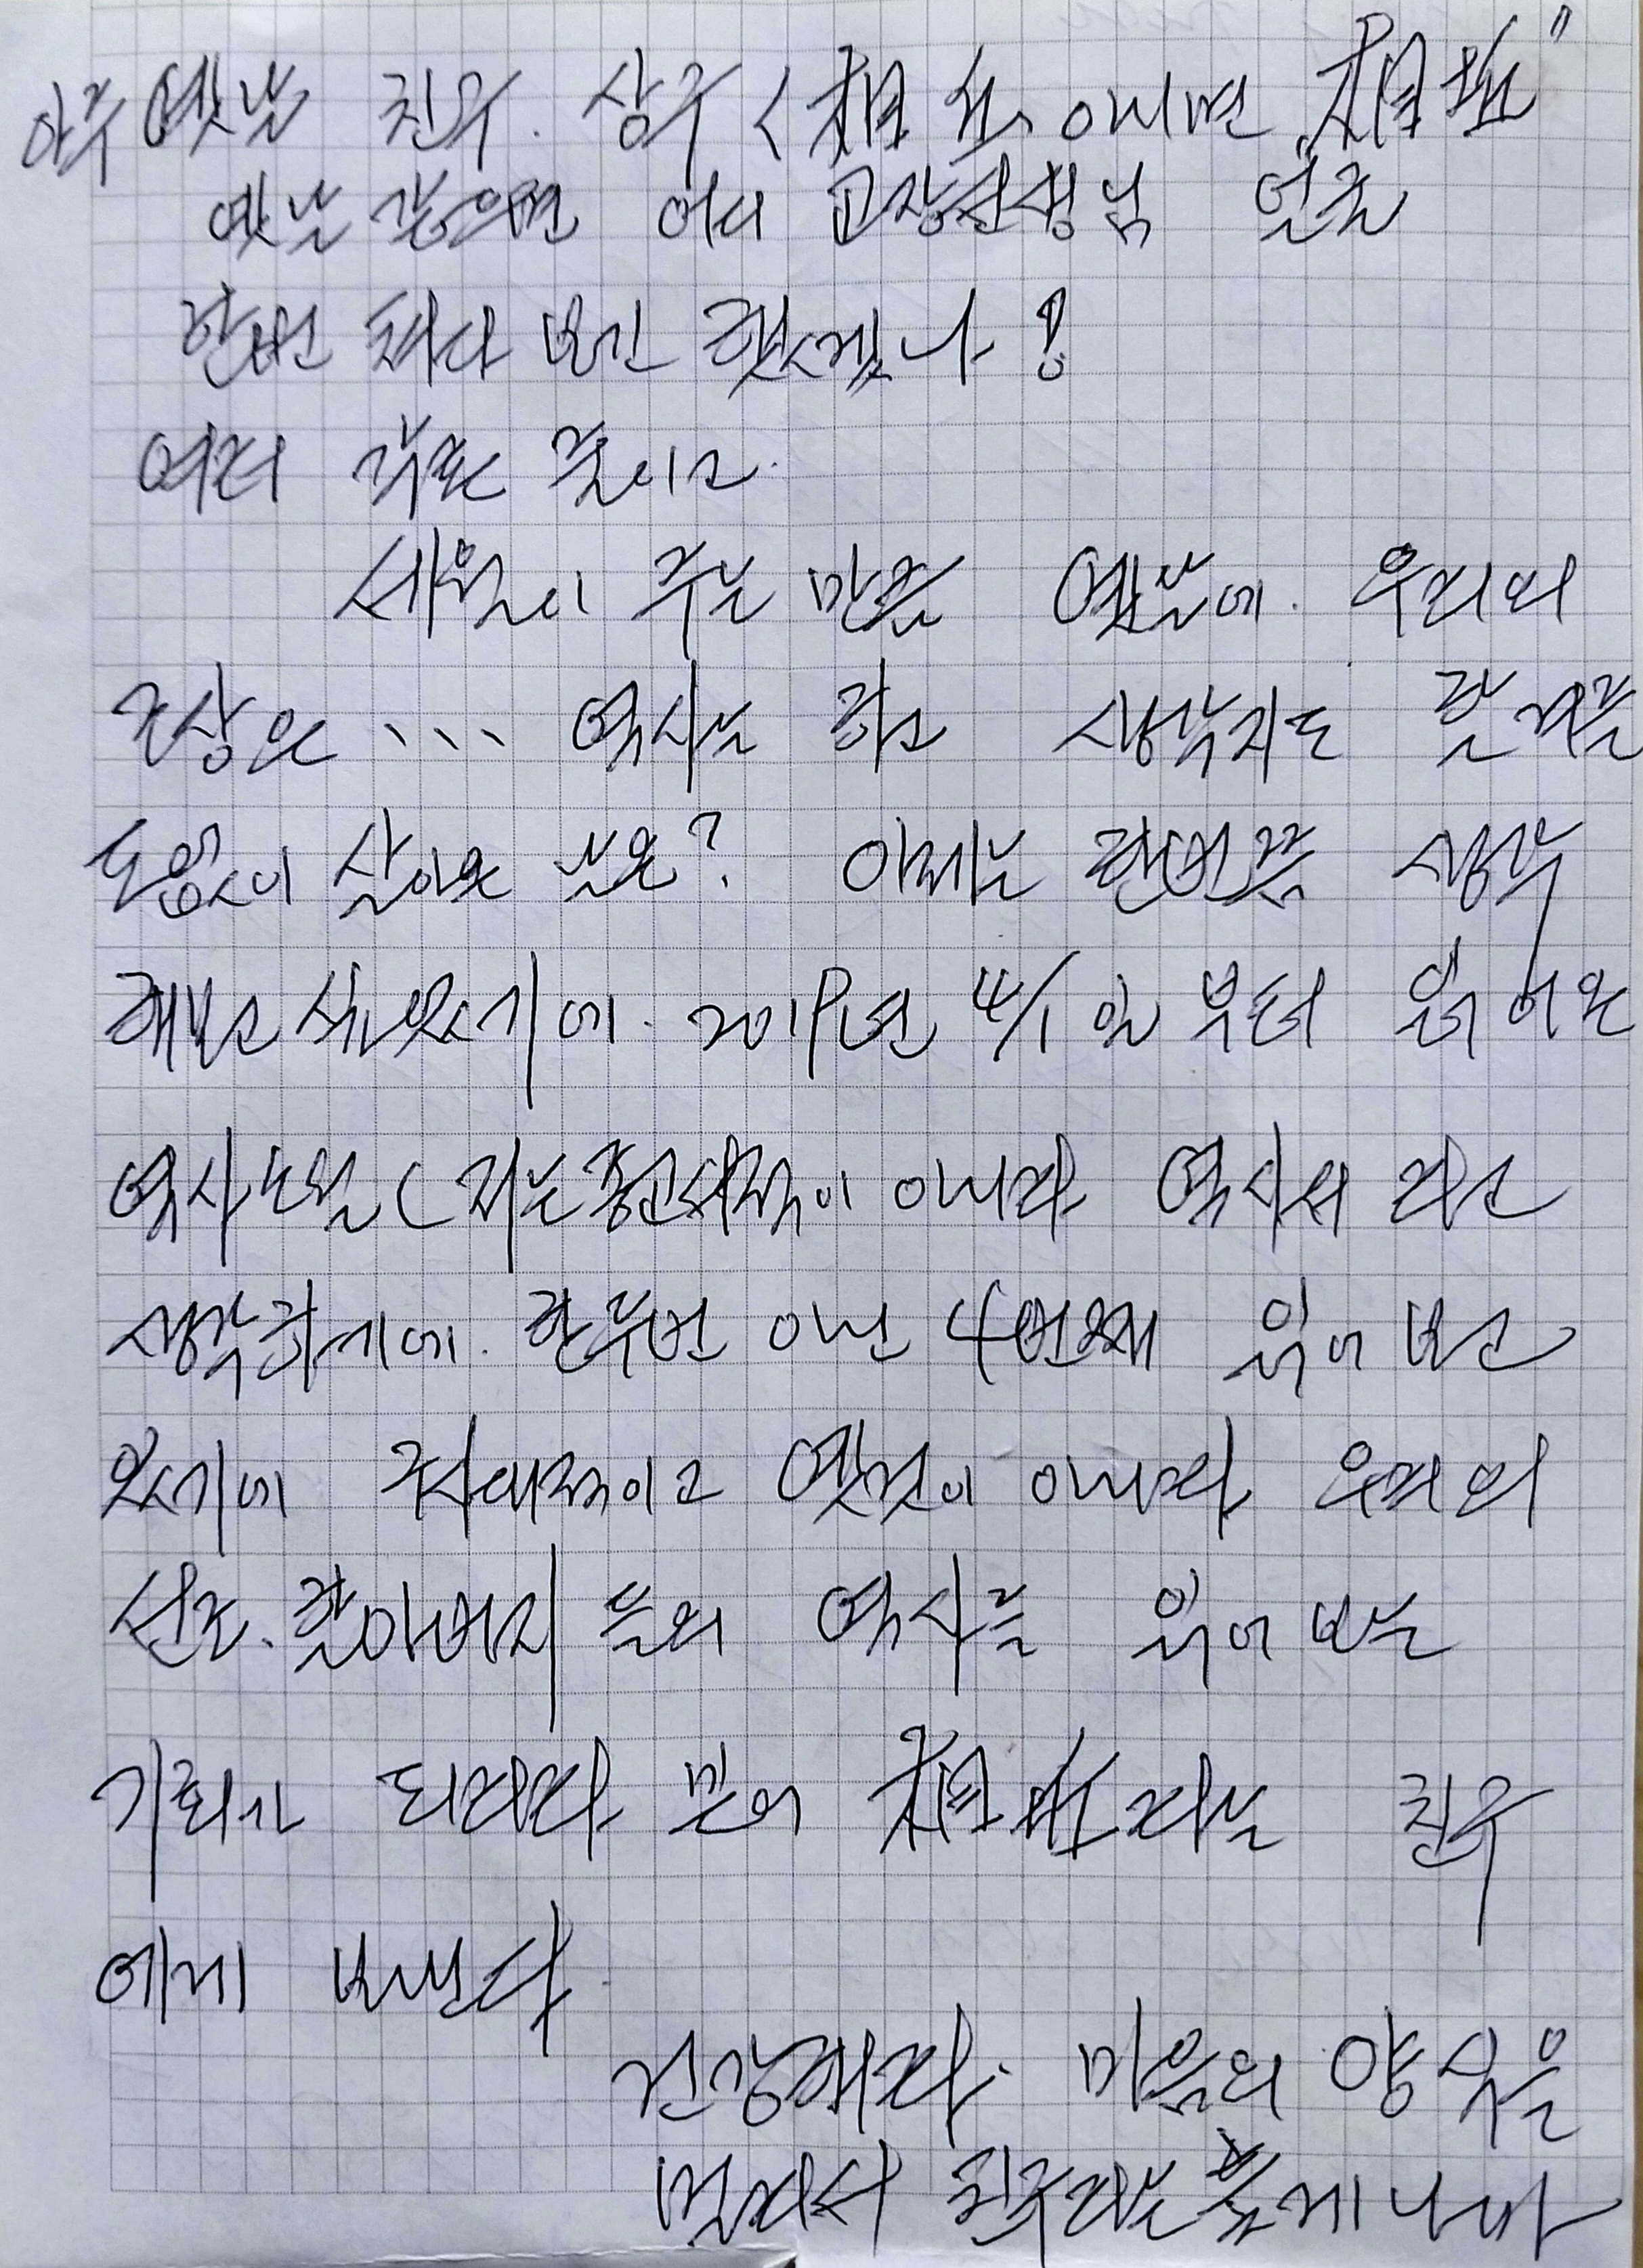 아주 옛날 친우. 상주 < 아니면
옛날 같으면 어디 교장선생님 얼굴
한번 쳐다 보긴 했겠나!
여러 각도 줄이고.
세월이 주는 만큼 옛날에. 우리의
조상은 ... 역사는 하고 생각지도 할 겨를
도 없이 살아온 날을? 이제는 한번쯤 생각
해보고 싶었기에. 2019년 4/1일 부터 읽어온
역사 (저는 종교서적이 아니라 역사서 라고
생각하기에. 한두번 아닌 4번째 읽어 보고
있기에 구시대적이고 옛것이 아니라 우리의
선조. 할아버지 들의 역사를 읽어 보는
기회가 되리라 믿어 라는 친우
에게 보낸다
건강해라. 마음의 양식을
멀리서 친구라는 게 나마